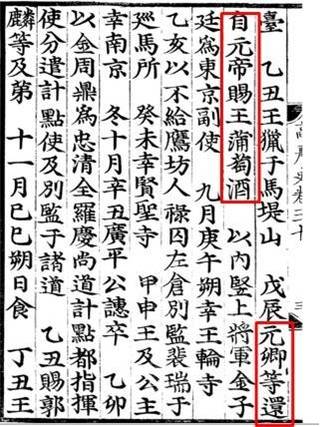 臺 乙丑王獵于馬堤山 戊辰元卿等還
自元帝賜王蒲萄酒 以內竪上將軍金子
廷爲東京副使 九月庚午朔幸王輪寺
乙亥以不給鷹坊人祿囚左倉別監裴瑞于
廵馬所 癸未幸賢聖寺 甲申王及公主
幸南京 冬十月辛丑廣平公譓卒 乙卯
以金周鼎爲忠清全羅慶尚道計點都指揮
使分遣計點使及別監于諸道 乙丑賜郭
麟等及第 十一月己巳朔日食 丁丑王